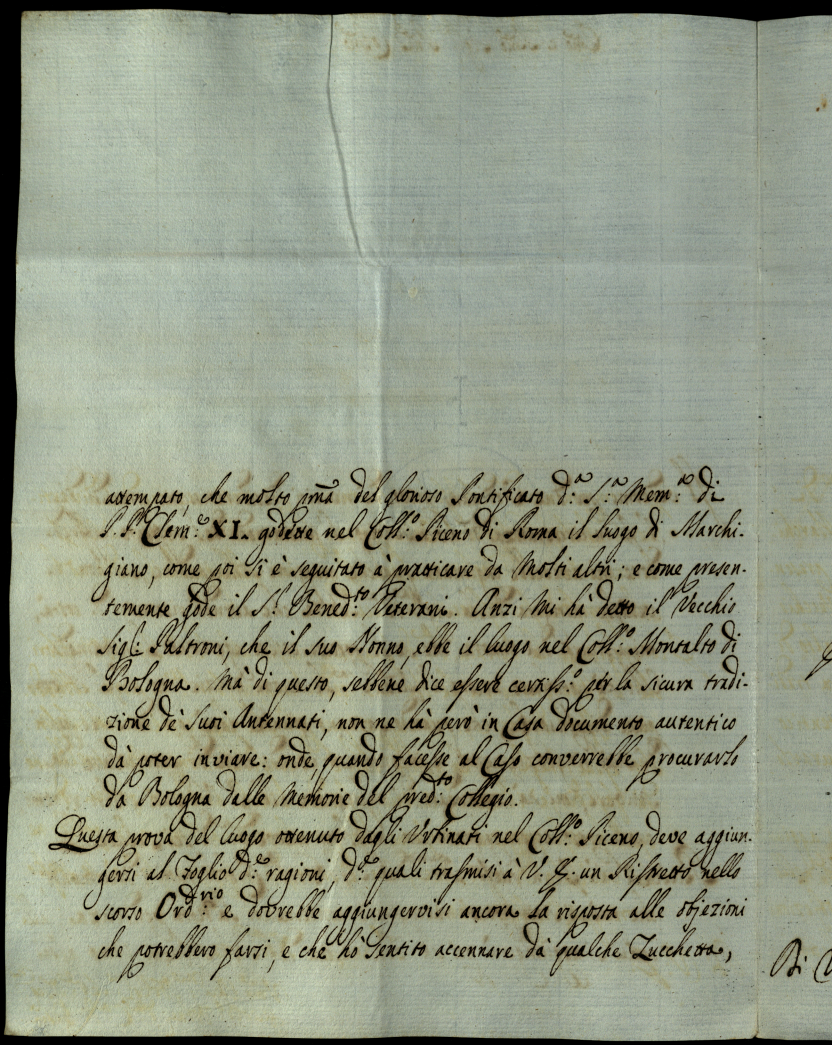 attempato, che molto pma del glorioso Pontificato d.ª S.ª Mem.ª di
P.P. Clem.e XI. godette nel Coll.o Piceno di Roma il luogo di Marchi-
giano, come poi si è seguitato à practicare da molti altri; e come presen-
temente gode il S.r Bened.to Veterani. Anzi mi hà detto il Vecchio
Sig.r Paltroni, che il suo Nonno, ebbe il luogo nel Coll.o Montalto di
Bologna. Mà di questo, sebbene dice essere certiss.o per la sicura tradi-
zione de' suoi Antennati, non ne hà però in Casa documento autentico
dà poter inviare: onde, quando facesse al Caso converrebbe procurarlo
da Bologna dalle memorie del pred.to Collegio.
Questa prova del luogo ottenuto dagli Urbinati nel Coll.o Piceno, deve aggiun-
gersi al Foglio d.e ragioni, d.e quali trasmisi à V. E. un Ristretto nello
scorso Ord.rio e dovrebbe aggiungervisi ancora la risposta alle objezioni
che potrebbero farsi, e che hò sentito accennare dà qualche Zucchetta,
Di